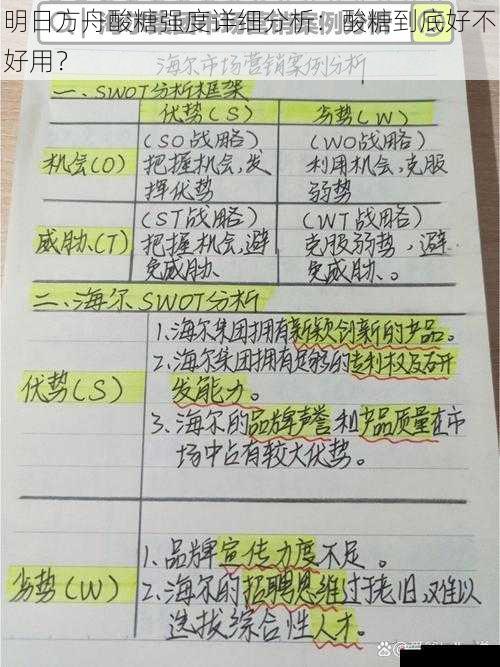 明日方舟酸糖强度详细分析：酸糖到底好不
好用？
海尔市场营销案例分析
一、SWOT分析框架
优势(S)
劣势(W)
机会(O)
(SO战略)
把握机会,发
挥优势
(WO战略)
利用机会,克服
弱势
威胁(T)
(ST战略)
把握机会,避
免威胁
(WT战略)
克服弱势，避
免威胁。
二、海尔SWOT分析
优势(S)
1.海尔集团拥有新颖创新的产品。
2.海尔集团拥有足够的专利权及研
发能力。
3.海尔的品牌声誉和产品质量在市
场中占有较大优势。
劣势(W)
1.品牌宣传力度不足。
2.海尔的招聘思维过于老旧,难以
选拔综合性人才。